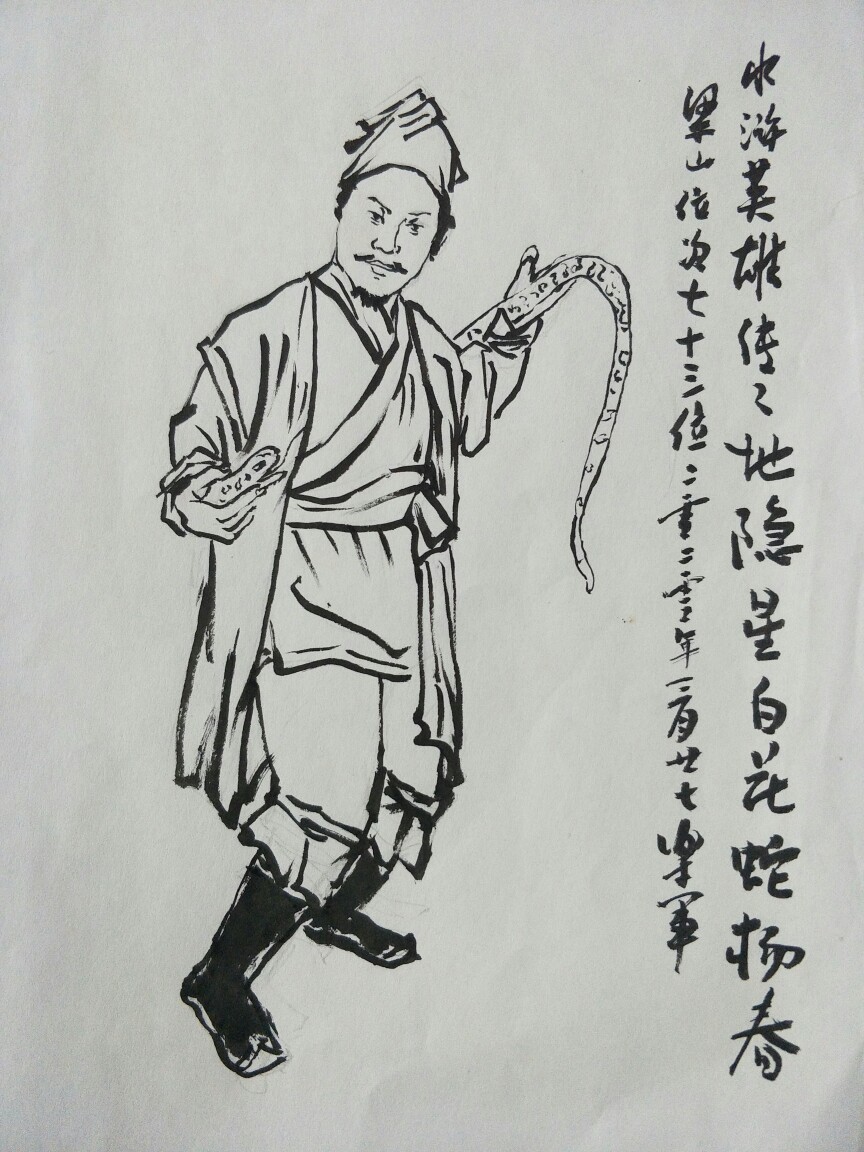 水浒英雄传之地隐星白花蛇杨春
梁山位次七十三位二零二零年二月廿七梁军